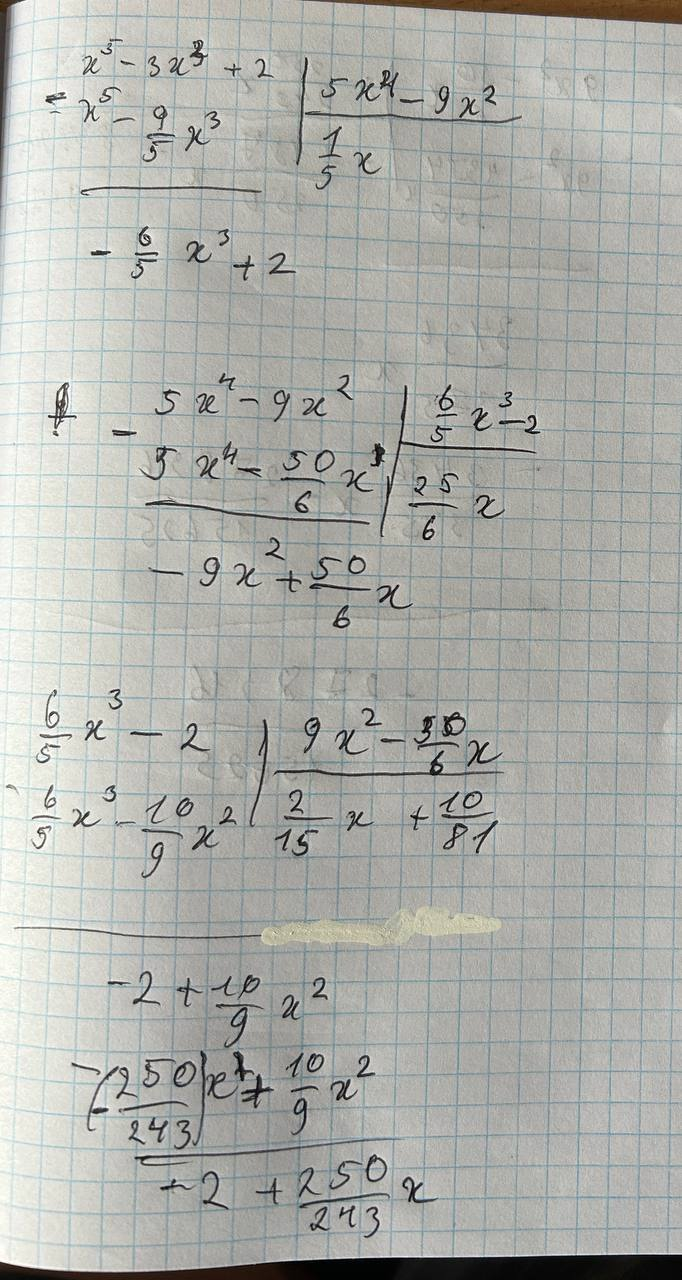 x⁵ - 3x³ + 2 | 5x⁴ - 9x²
- x⁵ - 9/5 x³ | 1/5 x
- 6/5 x³ + 2
- 5x⁴ - 9x² | 6/5 x³ - 2
5x⁴ - 50/6 x | 25/6 x
- 9x² + 50/6 x
6/5 x³ - 2 | 9x² - 50/6 x
- 6/5 x³ - 10/9 x² | 2/15 x + 10/81
-2 + 10/9 x²
- (-250/243) x + 10/9 x²
-2 + 250/243 x